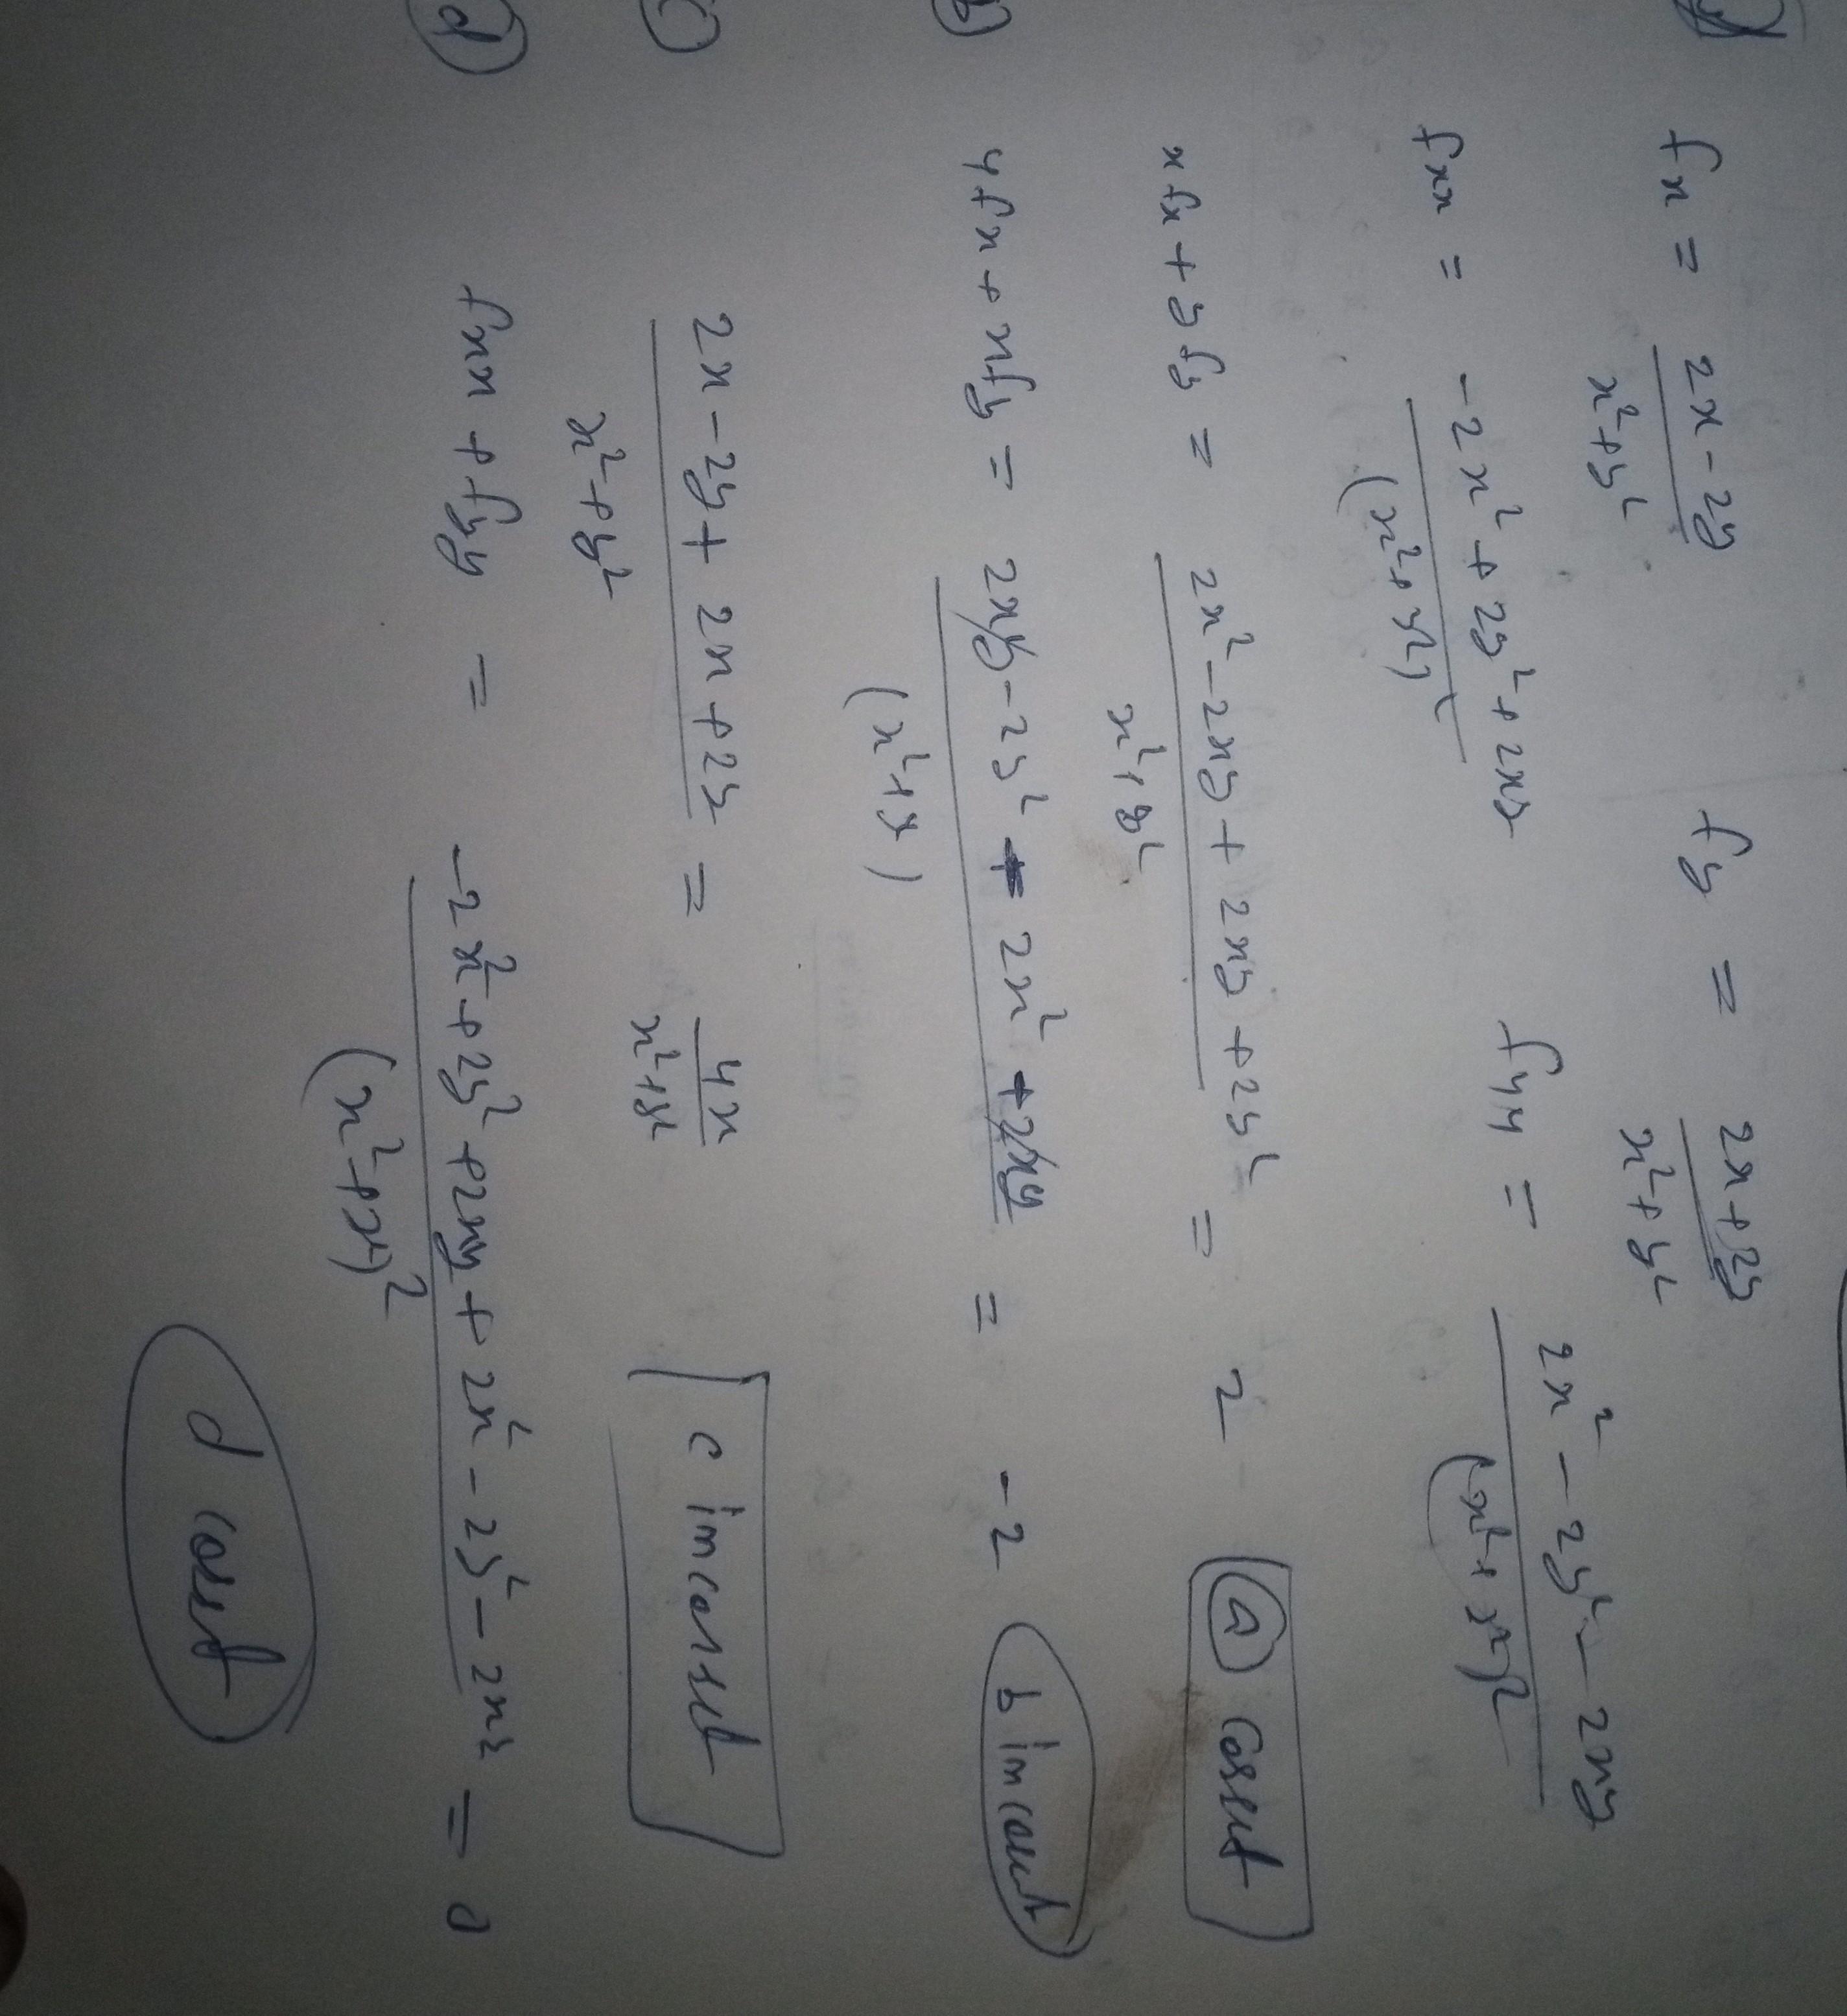 fx = (2x - 2y)/(x² + y²) fy = (2x + 2y)/(x² + y²)
fxx = (-2x² + 2y² + 2xy)/(x² + y²)² fyy = (2x² - 2y² - 2xy)/(x² + y²)²
xfx + yfy = (2x² - 2xy + 2xy + 2y²)/(x² + y²) = 2 (a) correct
b) yfx + xfy = (2xy - 2y² + 2x² + 2xy)/(x² + y) = -2 b incorrect
c) (2x - 2y + 2x + 2y)/(x² + y²) = 4x/(x² + y²) c incorrect
d) fxx + fyy = (-2x² + 2y² + 2xy + 2x² - 2y² - 2xy)/(x² + y²)² = 0
d correct